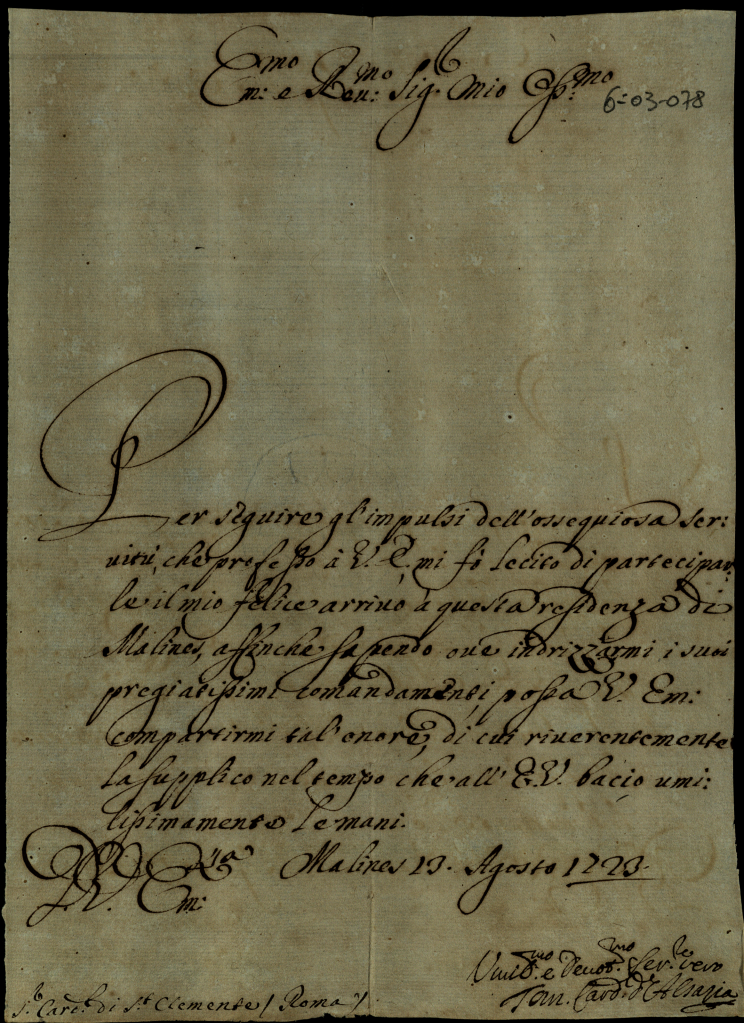 Em:mo e Reu:mo Sig.r mio Oss:mo
6-03-078
Per seguire gl'impulsi dell'ossequiosa ser:
uitú, che professo à V. E. mi fò lecito di partecipar:
le il mio felice arriuo à questa residenza di
Malines, affinche sapendo oue indrizzarmi i suoi
pregiatissimi comandamenti, possa V. Em:
compartirmi tal'onore, di cui riuerentemente
la supplico nel tempo che all'E.V. bacio umi:
lissimamente le mani.
Malines 13. Agosto 1723.
D. V. Em:za
Vmil.mo e Deuot.mo Ser.re vero
Tom. Card. d'Alsazia
S.r Card. di S.t Clemente / Roma /